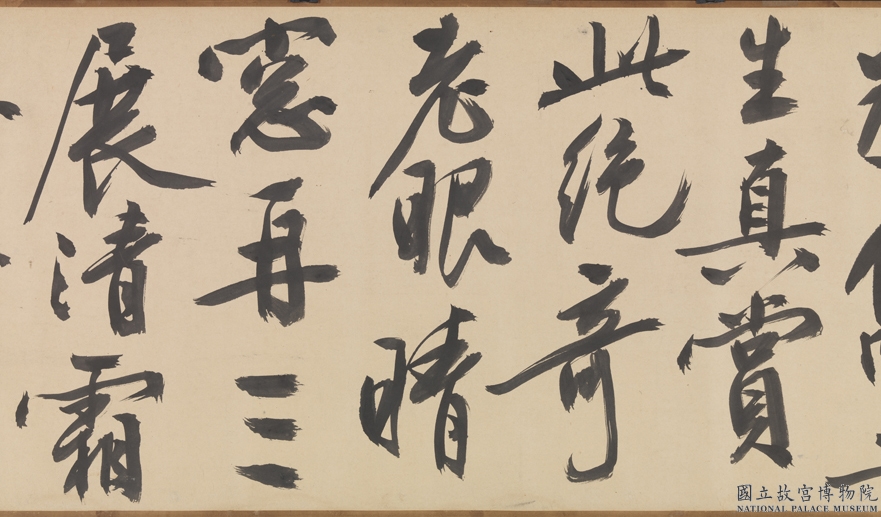 生真賞
此絶奇
老眼晴
窓再三
展清霜
國立故宮博物院
NATIONAL PALACE MUSEUM